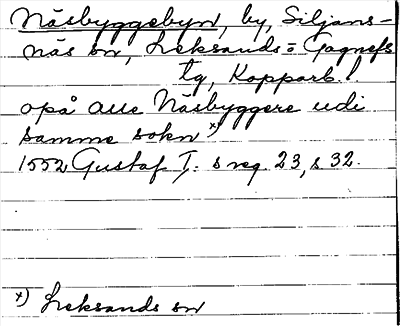 Näsbyggebyn, by, Siljans-
näs sn, Leksands= Gagnefs
tg, Kopparb. l.
opå alle Näsbyggere udi
samme sokn x)
1552 Gustaf I: s reg. 23, s. 32.
x) Leksands sn